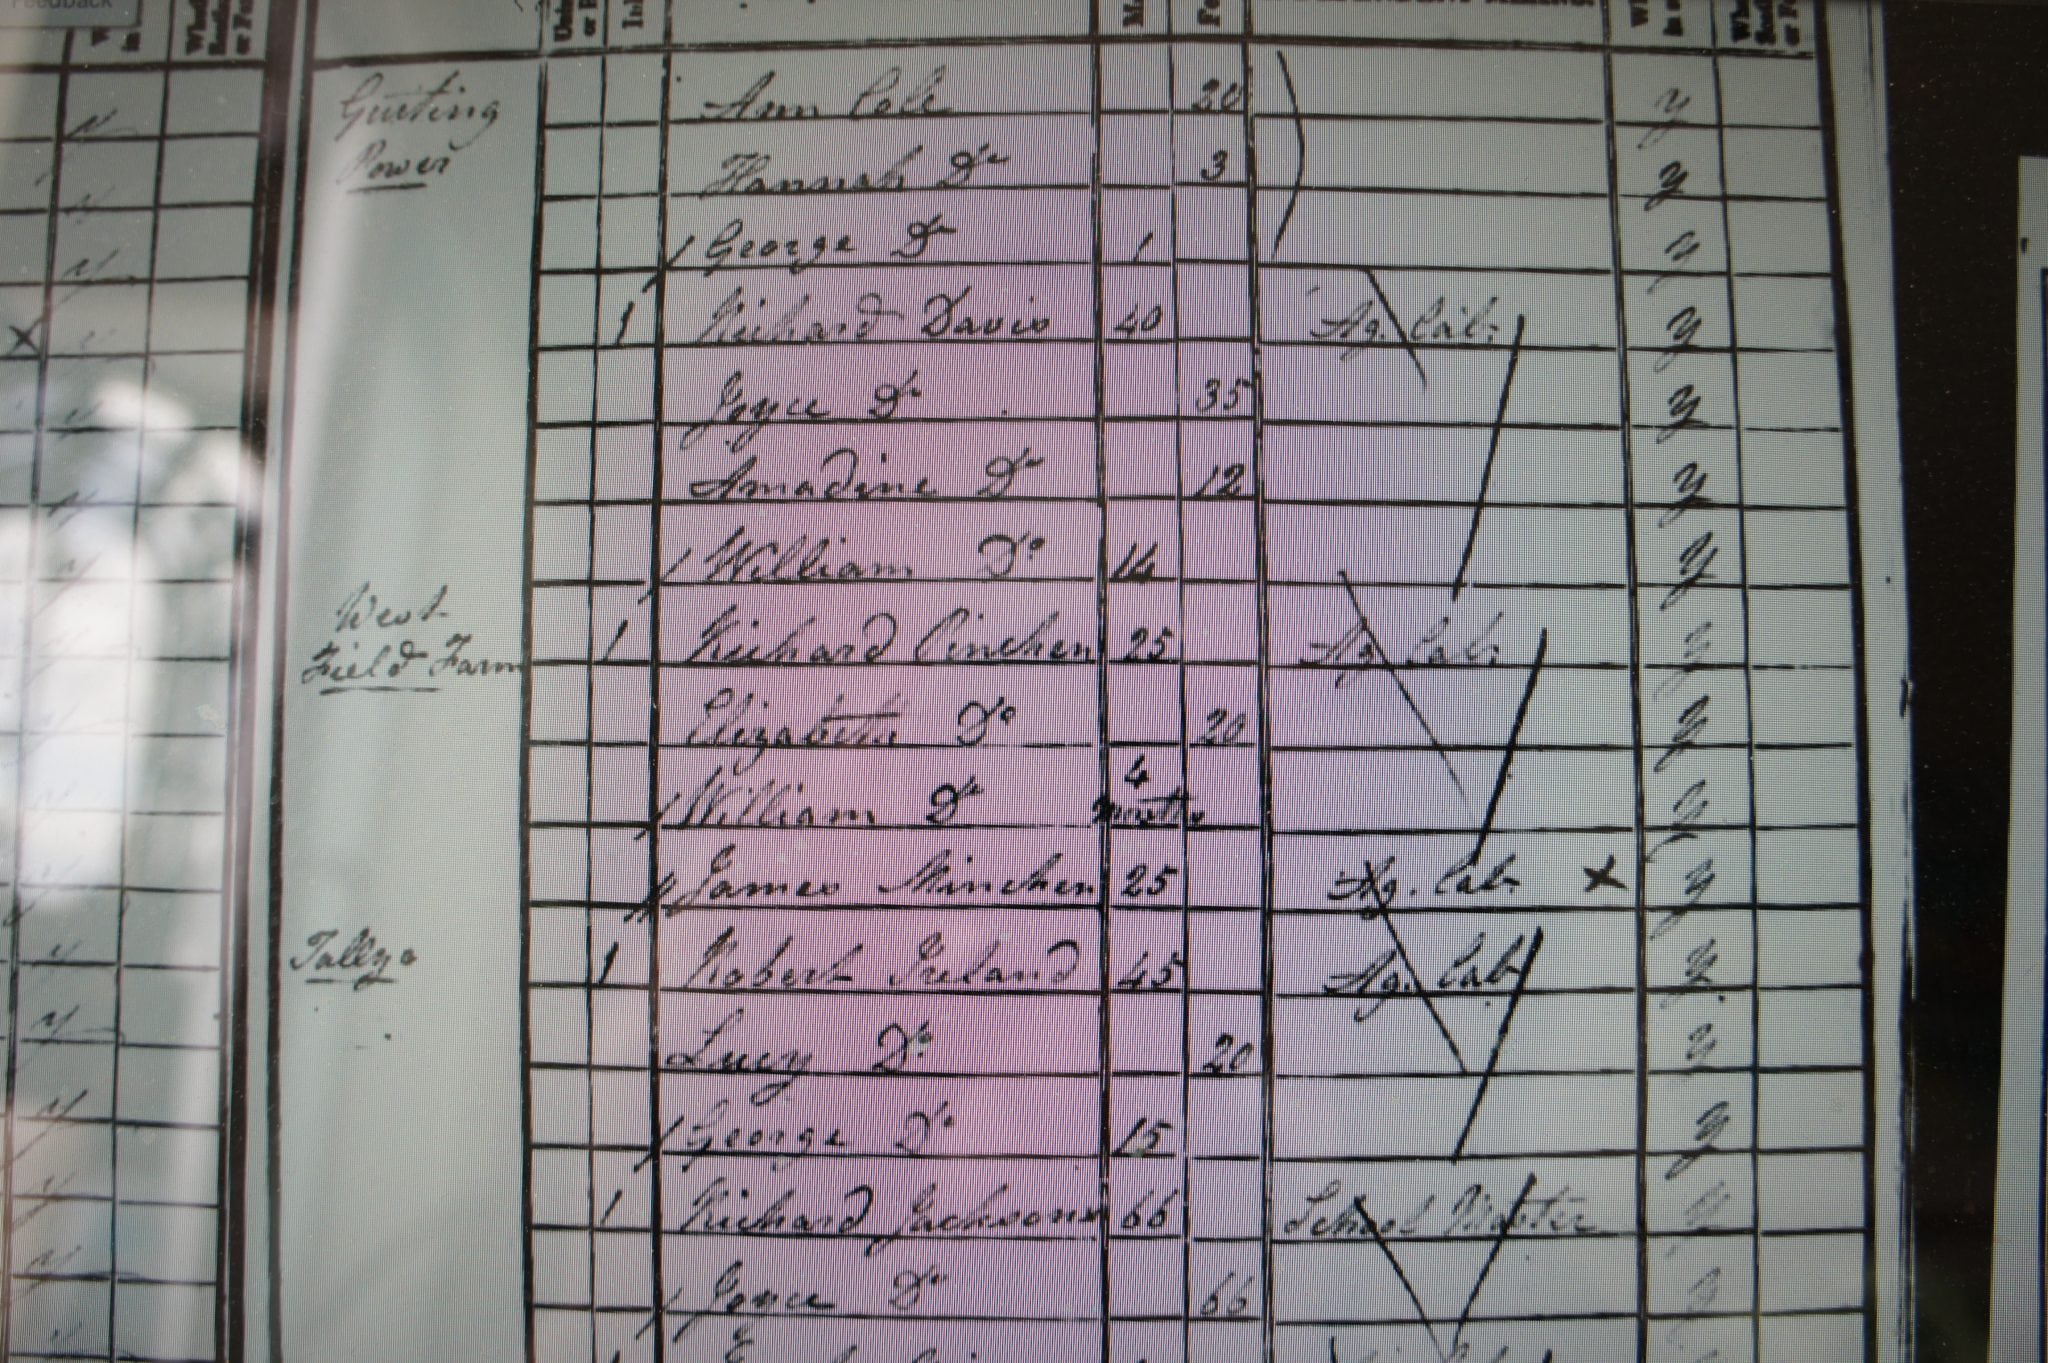 Feedback
Guiting Ann Cole 20 y
Power Hannah Do 3 y
George Do 1 y
1 Richard Davis 40 Ag. Lab. y
Joyce Do 35 y
Amadine Do 12 y
William Do 14 y
West
Field Farm 1 Richard Cinchen 25 Ag. Lab. y
Elizabeth Do 20 y
4
William Do months y
James Minchen 25 Ag. Lab. x y
Tallys 1 Robert Ireland 45 Ag. Lab. y
Lucy Do 20 y
George Do 15 y
1 Richard Jackson 66 School Master y
Joyce Do 66 y